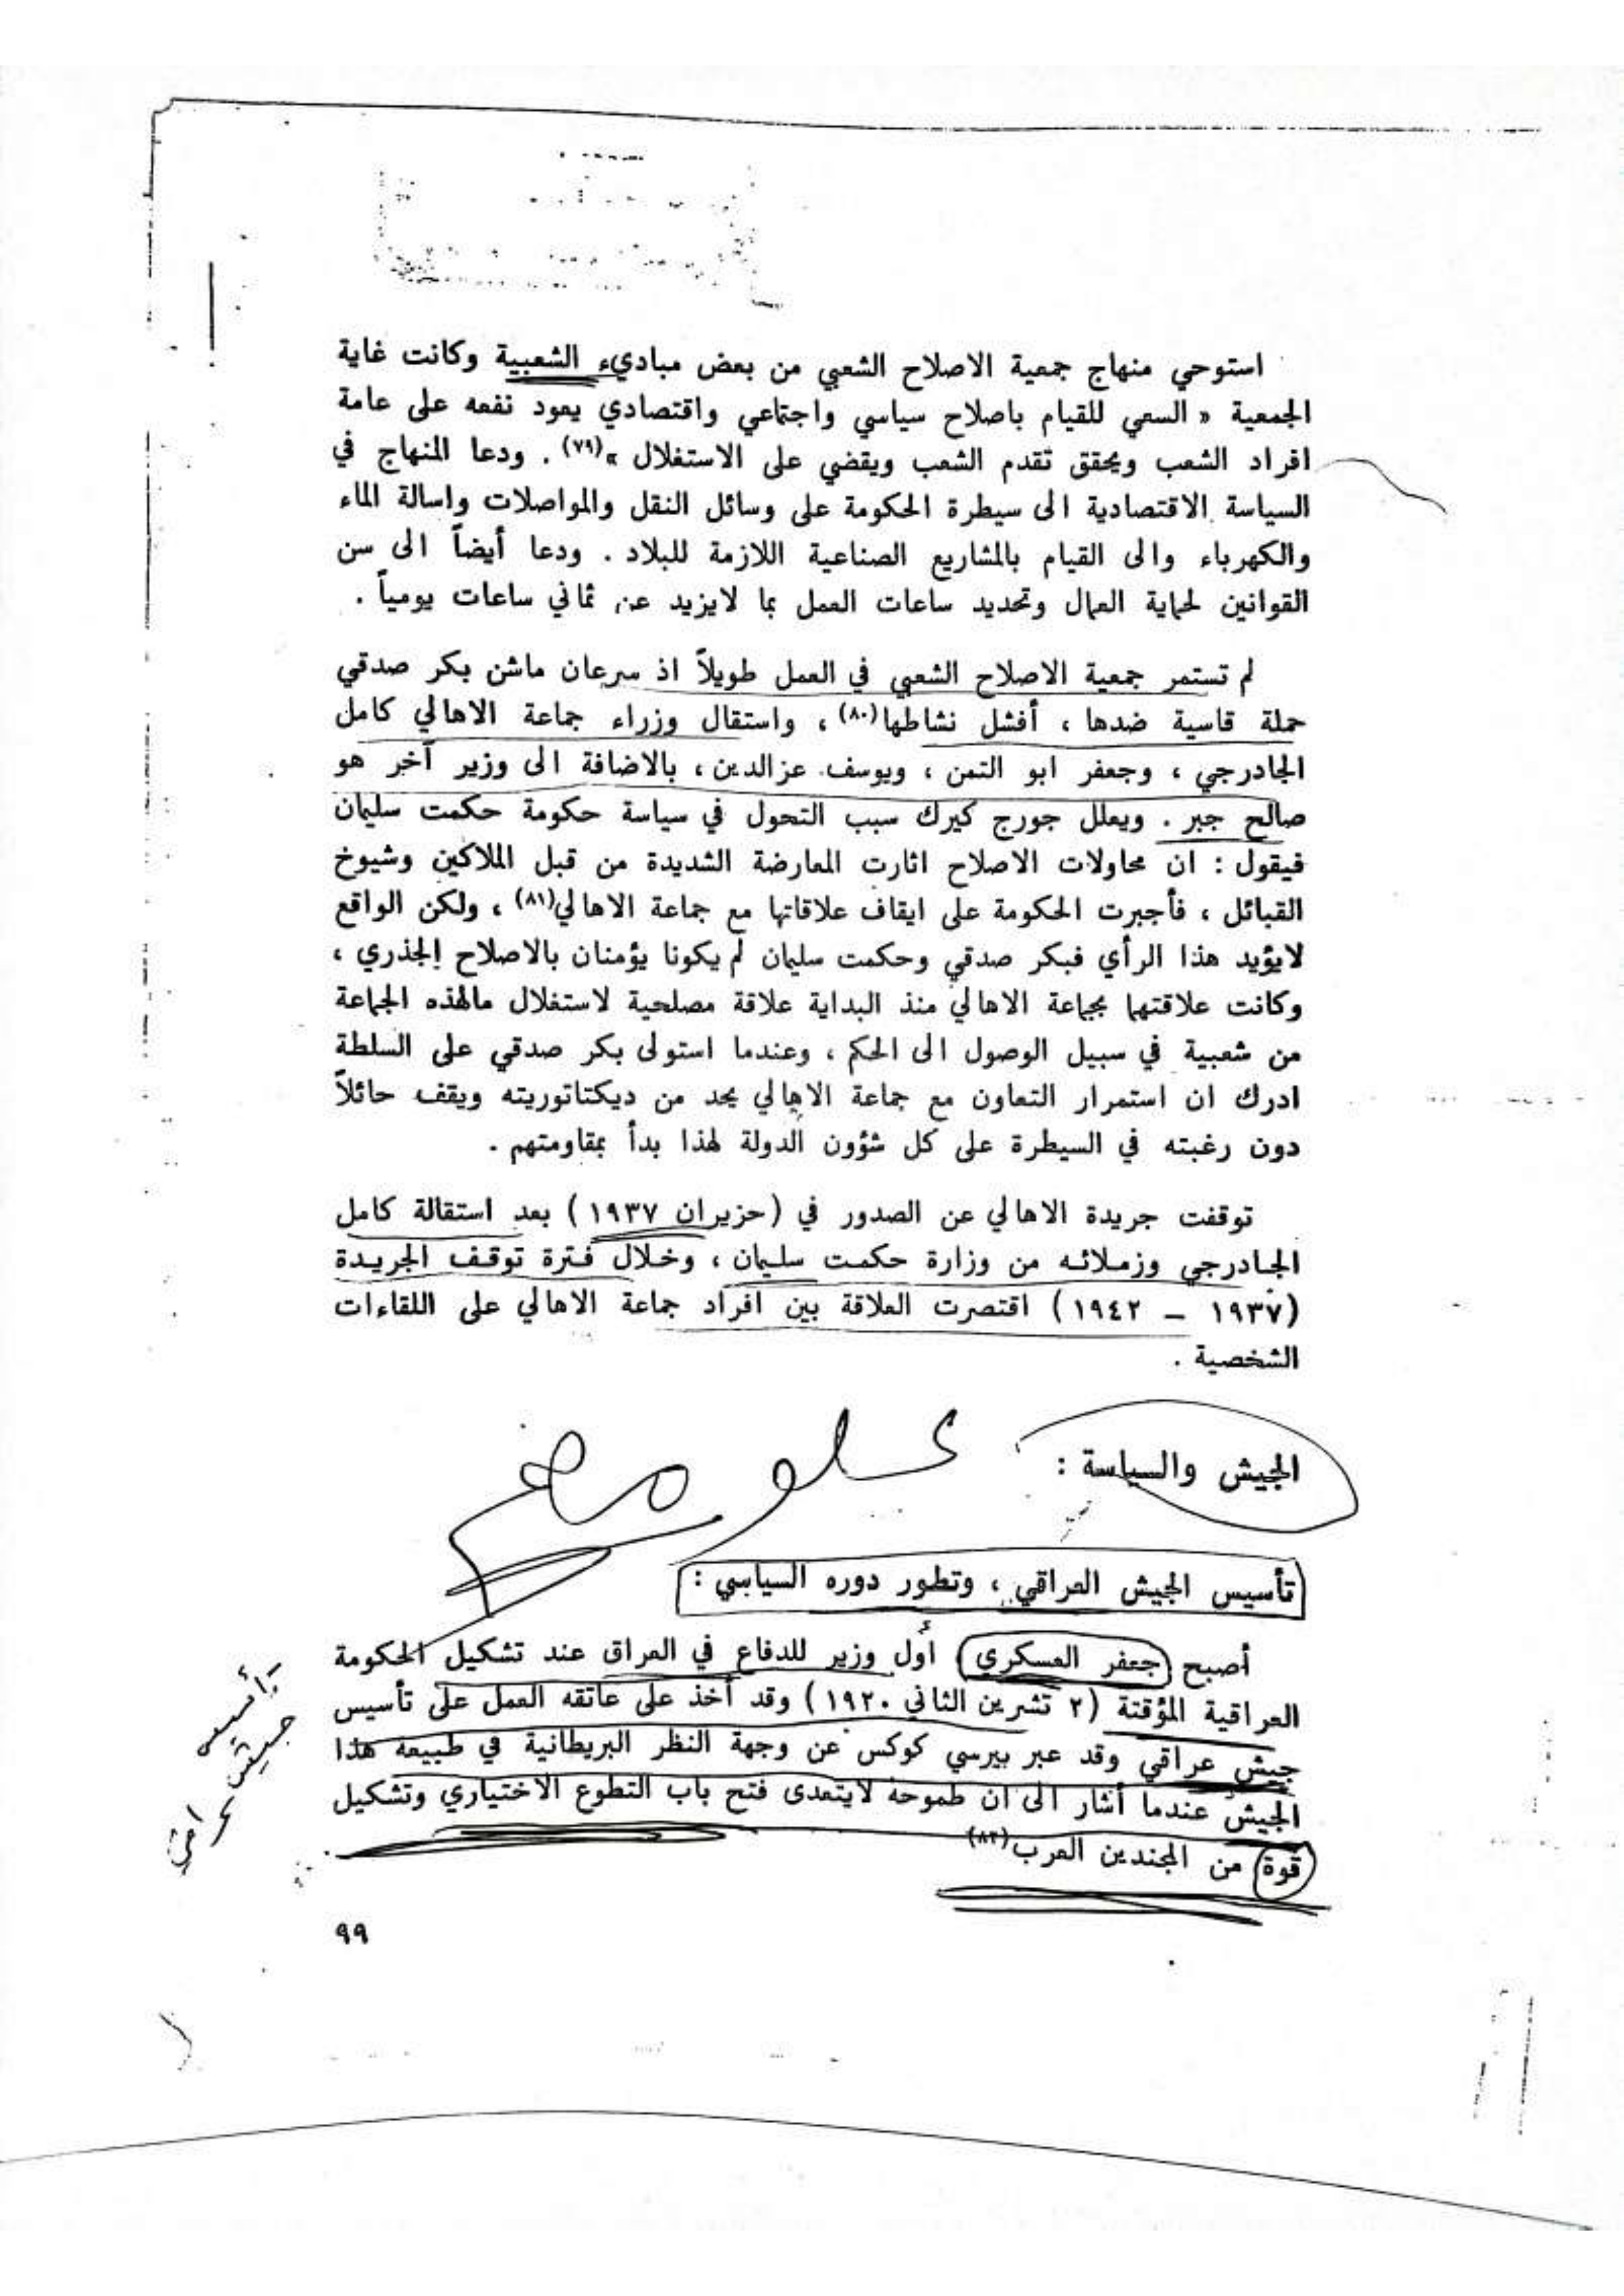 استوحي منهاج جمعية الاصلاح الشعبي من بعض مباديء الشعبية وكانت غاية
الجمعية « السعي للقيام باصلاح سياسي واجتماعي واقتصادي يعود نفعه على عامة
افراد الشعب ويحقق تقدم الشعب ويقضي على الاستغلال »(٧٩) . ودعا المنهاج في
السياسة الاقتصادية الى سيطرة الحكومة على وسائل النقل والمواصلات واسالة الماء
والكهرباء والى القيام بالمشاريع الصناعية اللازمة للبلاد . ودعا أيضاً الى سن
القوانين لحماية العمال وتحديد ساعات العمل بما لايزيد عن ثماني ساعات يومياً .
لم تستمر جمعية الاصلاح الشعبي في العمل طويلاً اذ سرعان ماشن بكر صدقي
حملة قاسية ضدها ، أفشل نشاطها(٨٠) ، واستقال وزراء جماعة الاهالي كامل
الجادرجي ، وجعفر ابو التمن ، ويوسف عزالدين ، بالاضافة الى وزير آخر هو
صالح جبر . ويعلل جورج كيرك سبب التحول في سياسة حكومة حكمت سليمان
فيقول : ان محاولات الاصلاح اثارت المعارضة الشديدة من قبل الملاكين وشيوخ
القبائل ، فأجبرت الحكومة على ايقاف علاقاتها مع جماعة الاهالي(٨١) ، ولكن الواقع
لايؤيد هذا الرأي فبكر صدقي وحكمت سليمان لم يكونا يؤمنان بالاصلاح الجذري ،
وكانت علاقتهما بجماعة الاهالي منذ البداية علاقة مصلحية لاستغلال مالهذه الجماعة
من شعبية في سبيل الوصول الى الحكم ، وعندما استولى بكر صدقي على السلطة
ادرك ان استمرار التعاون مع جماعة الاهالي يحد من ديكتاتوريته ويقف حائلاً
دون رغبته في السيطرة على كل شؤون الدولة لهذا بدأ بمقاومتهم .
توقفت جريدة الاهالي عن الصدور في (حزيران ١٩٣٧) بعد استقالة كامل
الجادرجي وزملائه من وزارة حكمت سليمان ، وخلال فترة توقف الجريدة
(١٩٣٧ – ١٩٤٢) اقتصرت العلاقة بين افراد جماعة الاهالي على اللقاءات
الشخصية .
الجيش والسياسة :
تأسيس الجيش العراقي ، وتطور دوره السياسي :
أصبح (جعفر العسكري) أول وزير للدفاع في العراق عند تشكيل الحكومة
العراقية المؤقتة (٢ تشرين الثاني ١٩٢٠) وقد أخذ على عاتقه العمل على تأسيس
جيش عراقي وقد عبر بيرسي كوكس عن وجهة النظر البريطانية في طبيعة هذا
الجيش عندما أشار الى ان طموحه لايتعدى فتح باب التطوع الاختياري وتشكيل
قوة من المجندين العرب(٨٢)
تأسيس
جيش
عراقي
٩٩